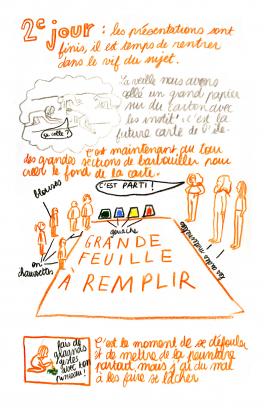 2e jour : les présentations sont
finis, il est temps de rentrer
dans le vif du sujet.
La veille nous avons
collé un grand papier
sur du carton avec
les instit' : c'est la
future carte de l'île.
ça colle ?
C'est maintenant au tour
des grandes sections de barbouiller pour
créer le fond de la carte.
C'EST PARTI !
blouses
gouache
en
chaussettes
GRANDE
FEUILLE
À REMPLIR
les maternelles
fais de
grands
gestes
avec ton
pinceau !
C'est le moment de se défouler
et de mettre de la peinture
partout, mais j'ai du mal
à les faire se lâcher